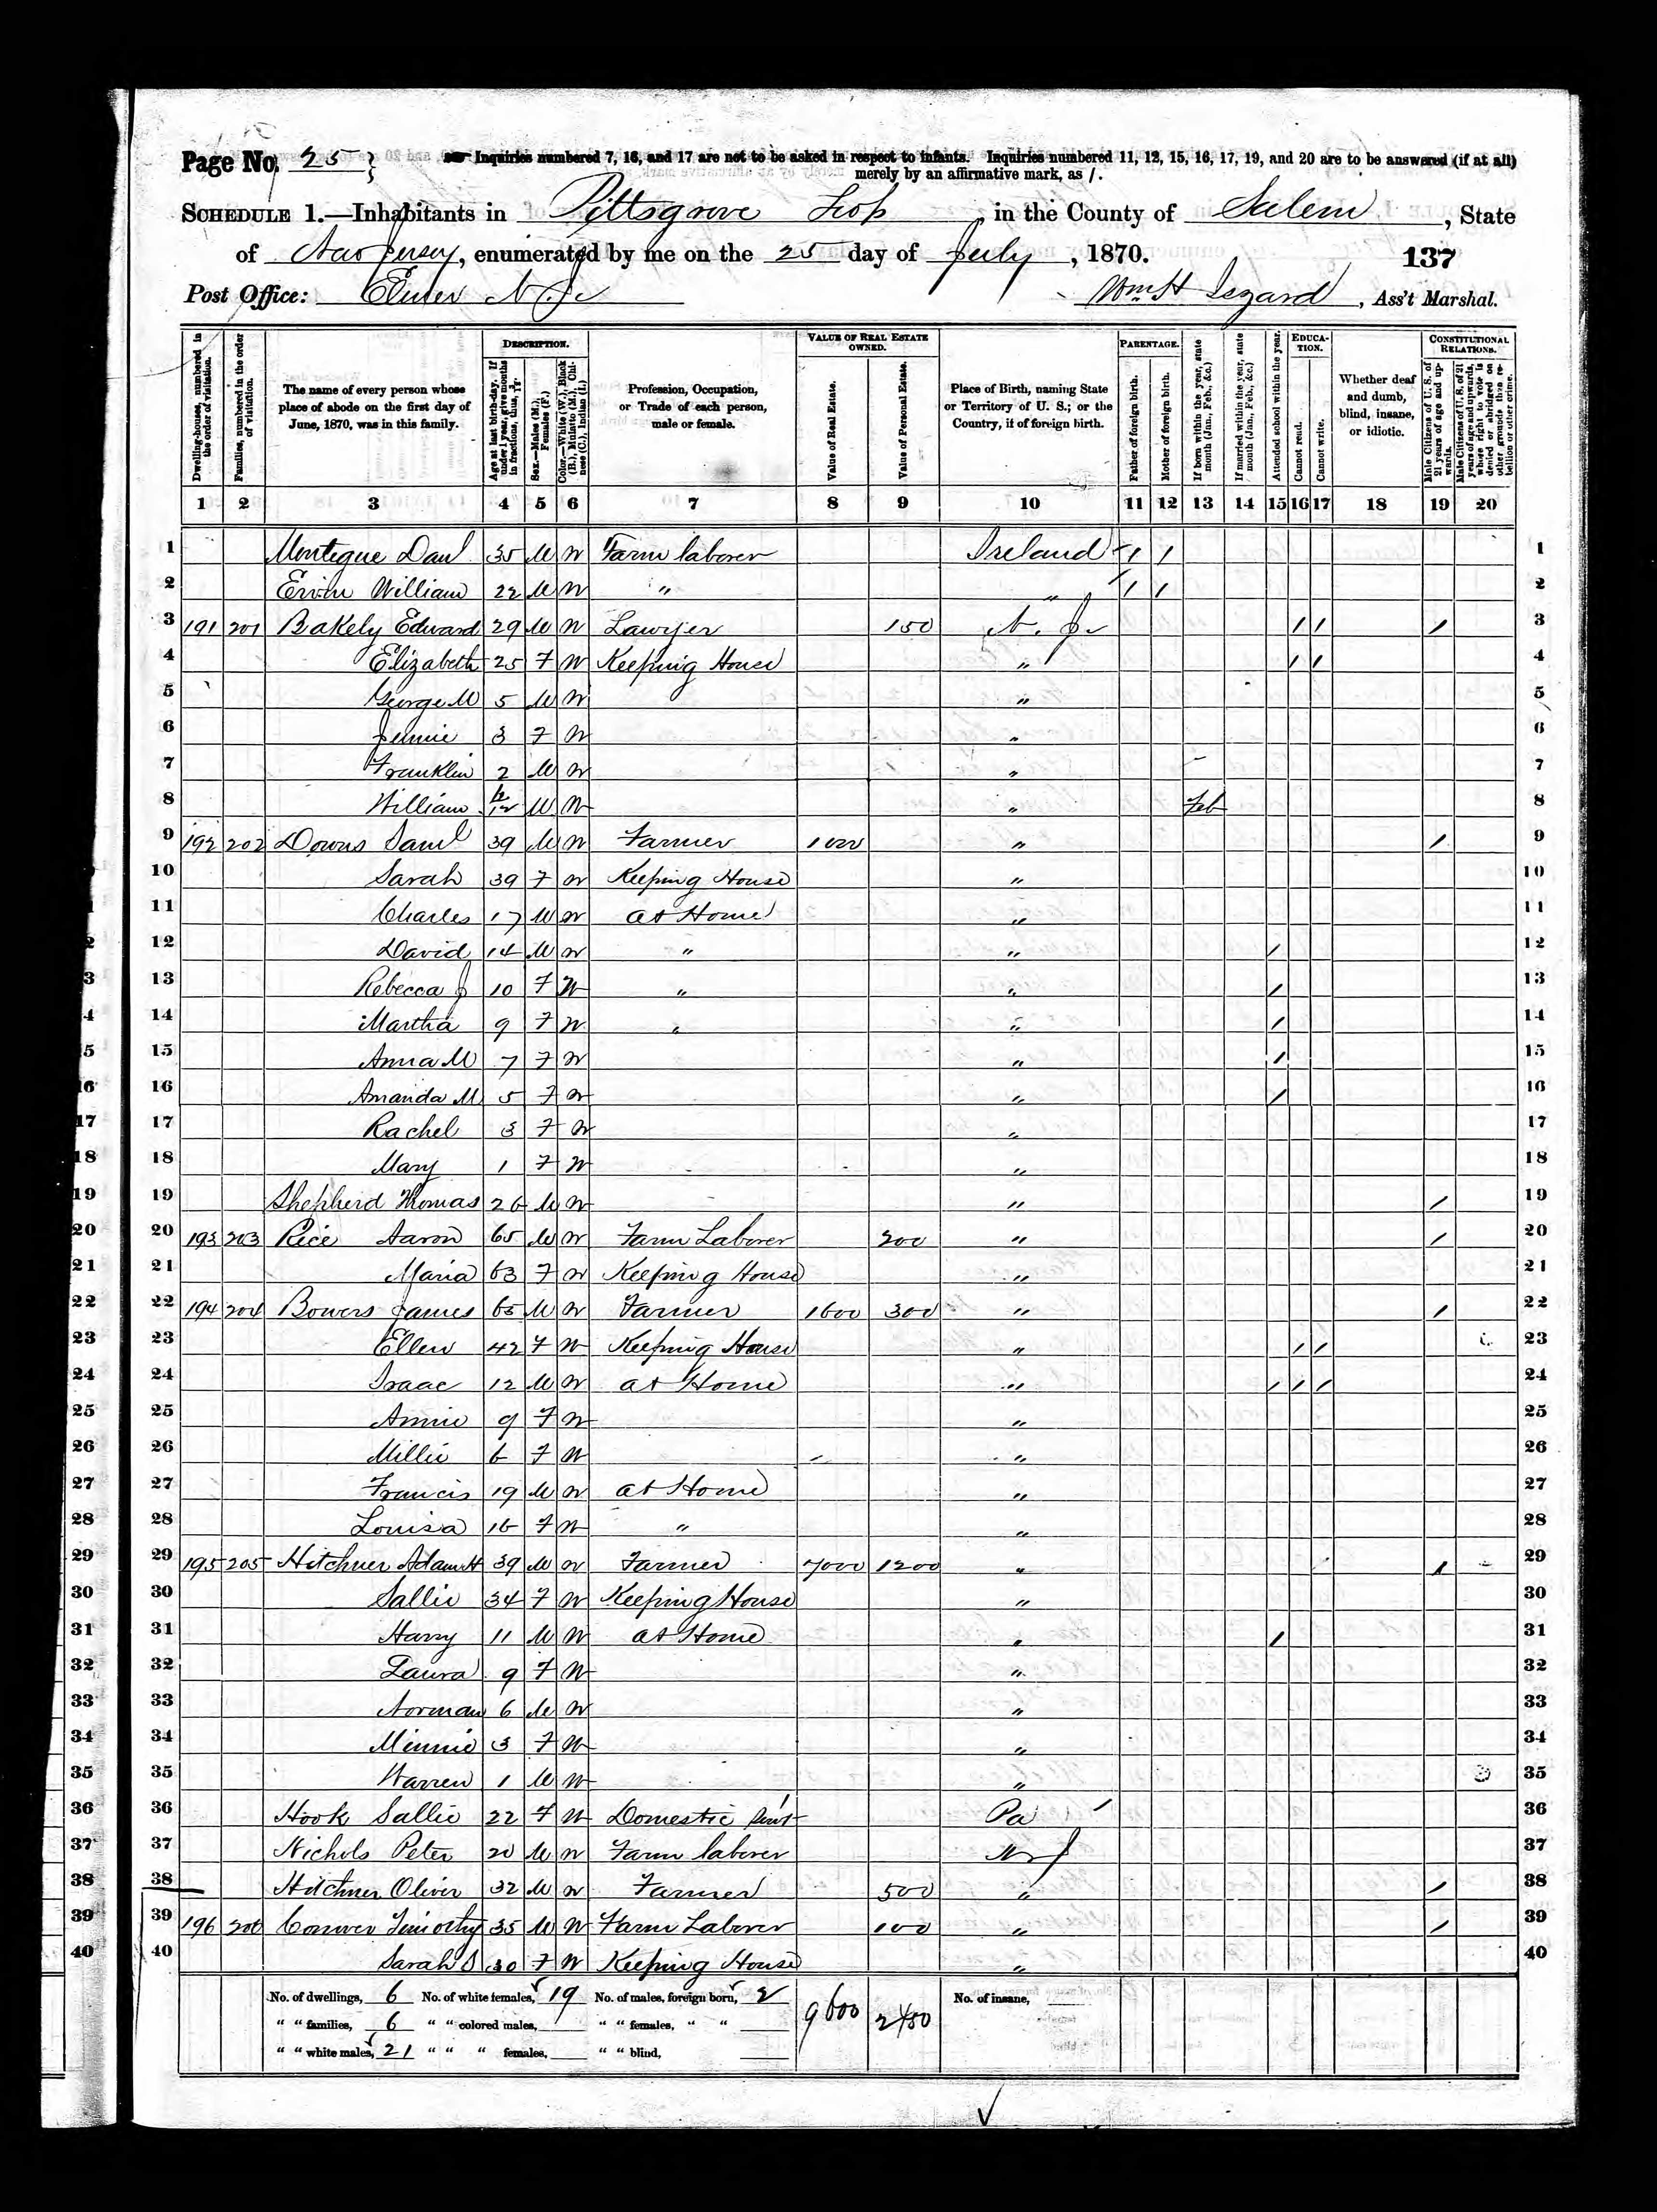 Page No. 25 } Inquiries numbered 7, 16, and 17 are not to be asked in respect to infants. Inquiries numbered 11, 12, 15, 16, 17, 19, and 20 are to be answered (if at all)
merely by an affirmative mark, as /.
SCHEDULE 1.—Inhabitants in Pittsgrove Twp, in the County of Salem, State
of New Jersey, enumerated by me on the 25 day of July, 1870. 137
Post Office: Elmer N. J. Wm H Iszard, Ass't Marshal.
Dwelling-houses, numbered in the order of visitation.
Families, numbered in the order of visitation.
The name of every person whose place of abode on the first day of June, 1870, was in this family.
DESCRIPTION.
Age at last birth-day. If under 1 year, give months in fractions, thus, 3/12.
Sex.—Males (M.), Females (F.)
Color.—White (W.), Black (B.), Mulatto (M.), Chinese (C.), Indian (I.)
Profession, Occupation, or Trade of each person, male or female.
VALUE OF REAL ESTATE OWNED.
Value of Real Estate.
Value of Personal Estate.
Place of Birth, naming State or Territory of U. S.; or the Country, if of foreign birth.
PARENTAGE.
Father of foreign birth.
Mother of foreign birth.
If born within the year, state month (Jan. Feb., &c.)
If married within the year, state month (Jan. Feb., &c.)
Attended school within the year.
EDUCATION.
Cannot read.
Cannot write.
Whether deaf and dumb, blind, insane, or idiotic.
CONSTITUTIONAL RELATIONS.
Male Citizens of U. S. of 21 years of age and upwards.
Male Citizens of U. S. of 21 years of age and upwards, whose right to vote is denied or abridged on other grounds than rebellion or other crime.
1 2 3 4 5 6 7 8 9 10 11 12 13 14 15 16 17 18 19 20
1 Montegue Danl 35 M W Farm laborer Ireland / / 1
2 Ervin William 22 M W " " / / 2
3 191 201 Bakely Edward 29 M W Lawyer 150 N. J. / / / 3
4 Elizabeth 25 F W Keeping House " / / 4
5 George W 5 M W " 5
6 Jennie 3 F W " 6
7 Franklin 2 M W " 7
8 William 4/12 M W " Feb 8
9 192 202 Downs Saml 39 M W Farmer 1000 " / 9
10 Sarah 39 F W Keeping House " 10
11 Charles 17 M W at Home " 11
12 David 14 M W " " / 12
13 Rebecca J 10 F W " " / 13
14 Martha 9 F W " " / 14
15 Anna M 7 F W " / 15
16 Amanda M 5 F W " / 16
17 Rachel 3 F W " 17
18 Mary 1 F W " 18
19 Shepherd Thomas 26 M W " / 19
20 193 203 Rice Aaron 65 M W Farm Laborer 200 " / 20
21 Maria 63 F W Keeping House " 21
22 194 204 Bowers James 65 M W Farmer 1600 300 " / 22
23 Ellen 42 F W Keeping House " / / 23
24 Isaac 12 M W at Home " / / / 24
25 Annie 9 F W " 25
26 Millie 6 F W " 26
27 Francis 19 M W at Home " 27
28 Louisa 16 F W " " 28
29 195 205 Hitchner Adam H 39 M W Farmer 7000 1200 " / 29
30 Sallie 34 F W Keeping House " 30
31 Harry 11 M W at Home " / 31
32 Laura 9 F W " 32
33 Norman 6 M W " 33
34 Minnie 3 F W " 34
35 Warren 1 M W " 35
36 Hook Sallie 22 F W Domestic Servt Pa 36
37 Nichols Peter 20 M W Farm laborer N J 37
38 Hitchner Oliver 32 M W Farmer 500 " / 38
39 196 206 Conover Timothy 35 M W Farm Laborer 100 " / 39
40 Sarah S 30 F W Keeping House " 40
No. of dwellings, 6 No. of white females, 19 No. of males, foreign born, 2 9600 2450 No. of insane,
" " families, 6 " " colored males, " " females, " "
" " white males, 21 " " " females, " " blind,